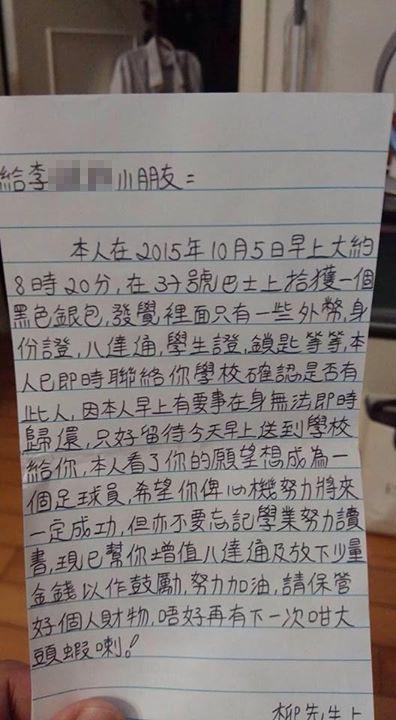 給李 小朋友=
本人在2015年10月5日早上大約
8時20分,在37號巴士上拾獲一個
黑色銀包,發覺裡面只有一些外幣,身
份證,八達通,學生證,鎖匙等等,本
人已即時聯絡你學校確認是否有
此人,因本人早上有要事在身無法即時
歸還,只好留待今天早上送到學校
給你,本人看了你的願望想成為一
個足球員,希望你俾心機努力將來
一定成功,但亦不要忘記學業努力讀
書,現已幫你增值八達通及放下少量
金錢以作鼓勵,努力加油,請保管
好個人財物,唔好再有下一次咁大
頭蝦喇!
柳先生上